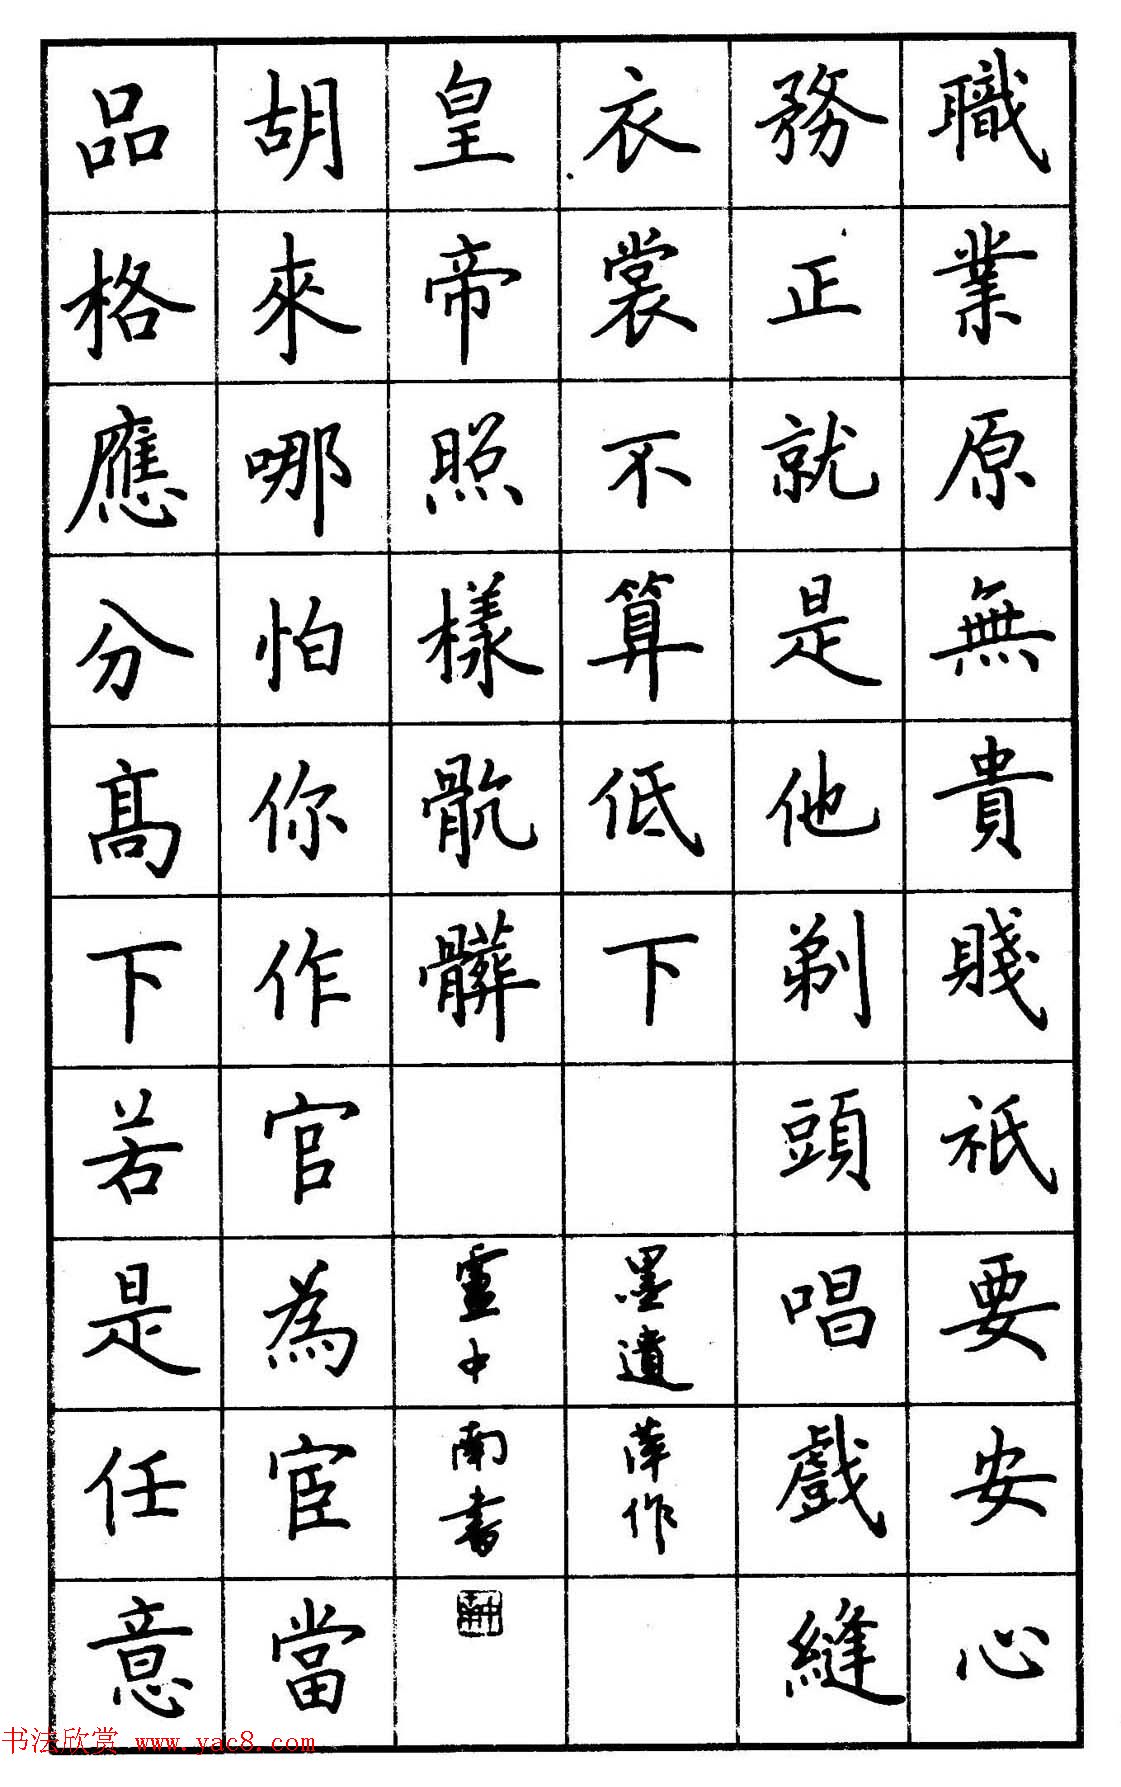 職業原無貴賤祇要安心
務正就是他剃頭唱戲縫
衣裳不算低下
品格應分髙下若是任意
胡來哪怕你作官為宦當
皇帝照樣骯髒
墨遺萍作
盧中南書
书法欣赏 www.yac8.com